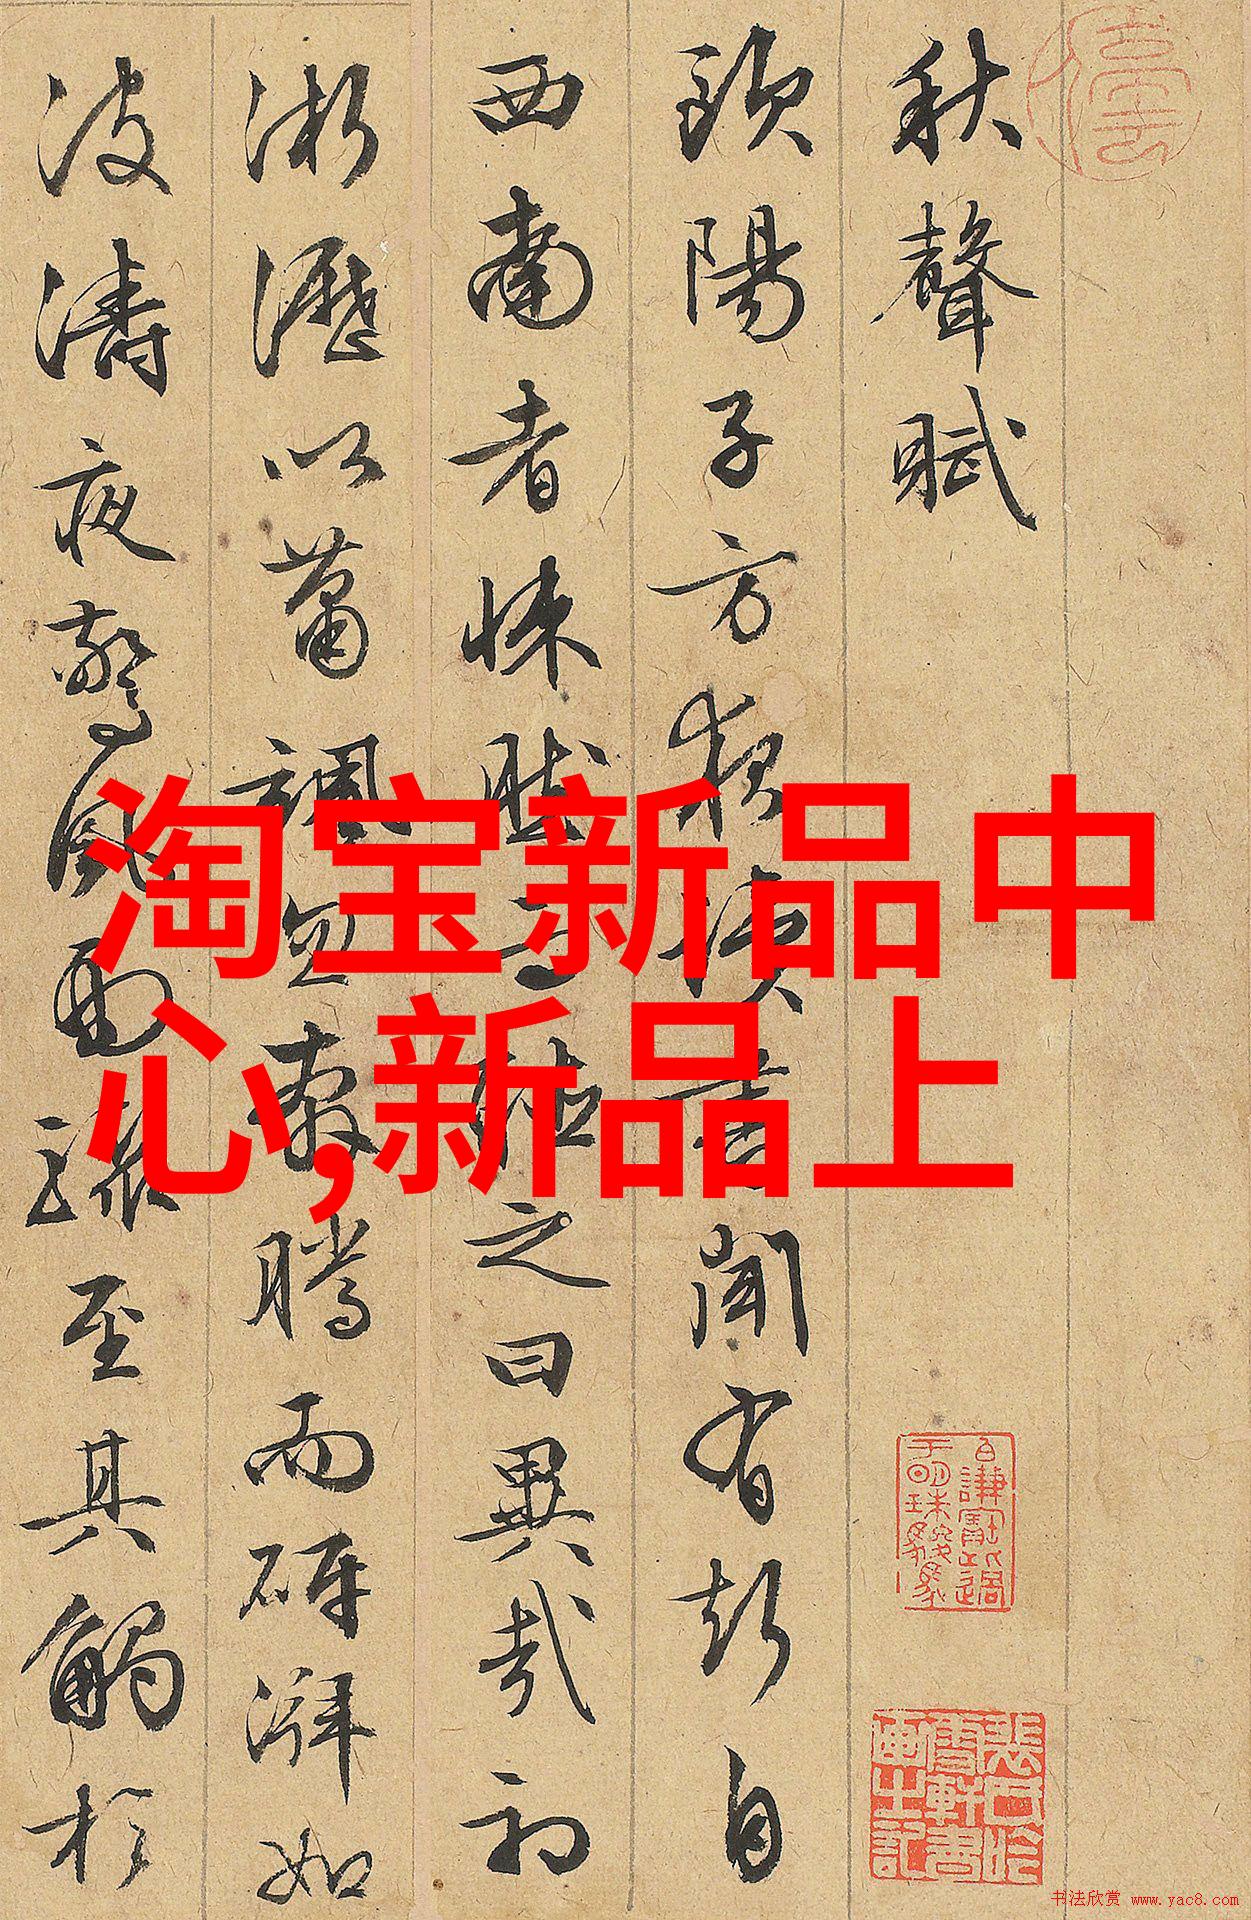 秋聲賦
歐陽子方夜讀書聞有聲自
西南者悚然而聽之曰異哉初
淅瀝以蕭忽奔騰而砰湃如
波濤夜驚風雨驟至其觸於
淘宝新品中
心,新品上
书法欣赏 www.yac8.com